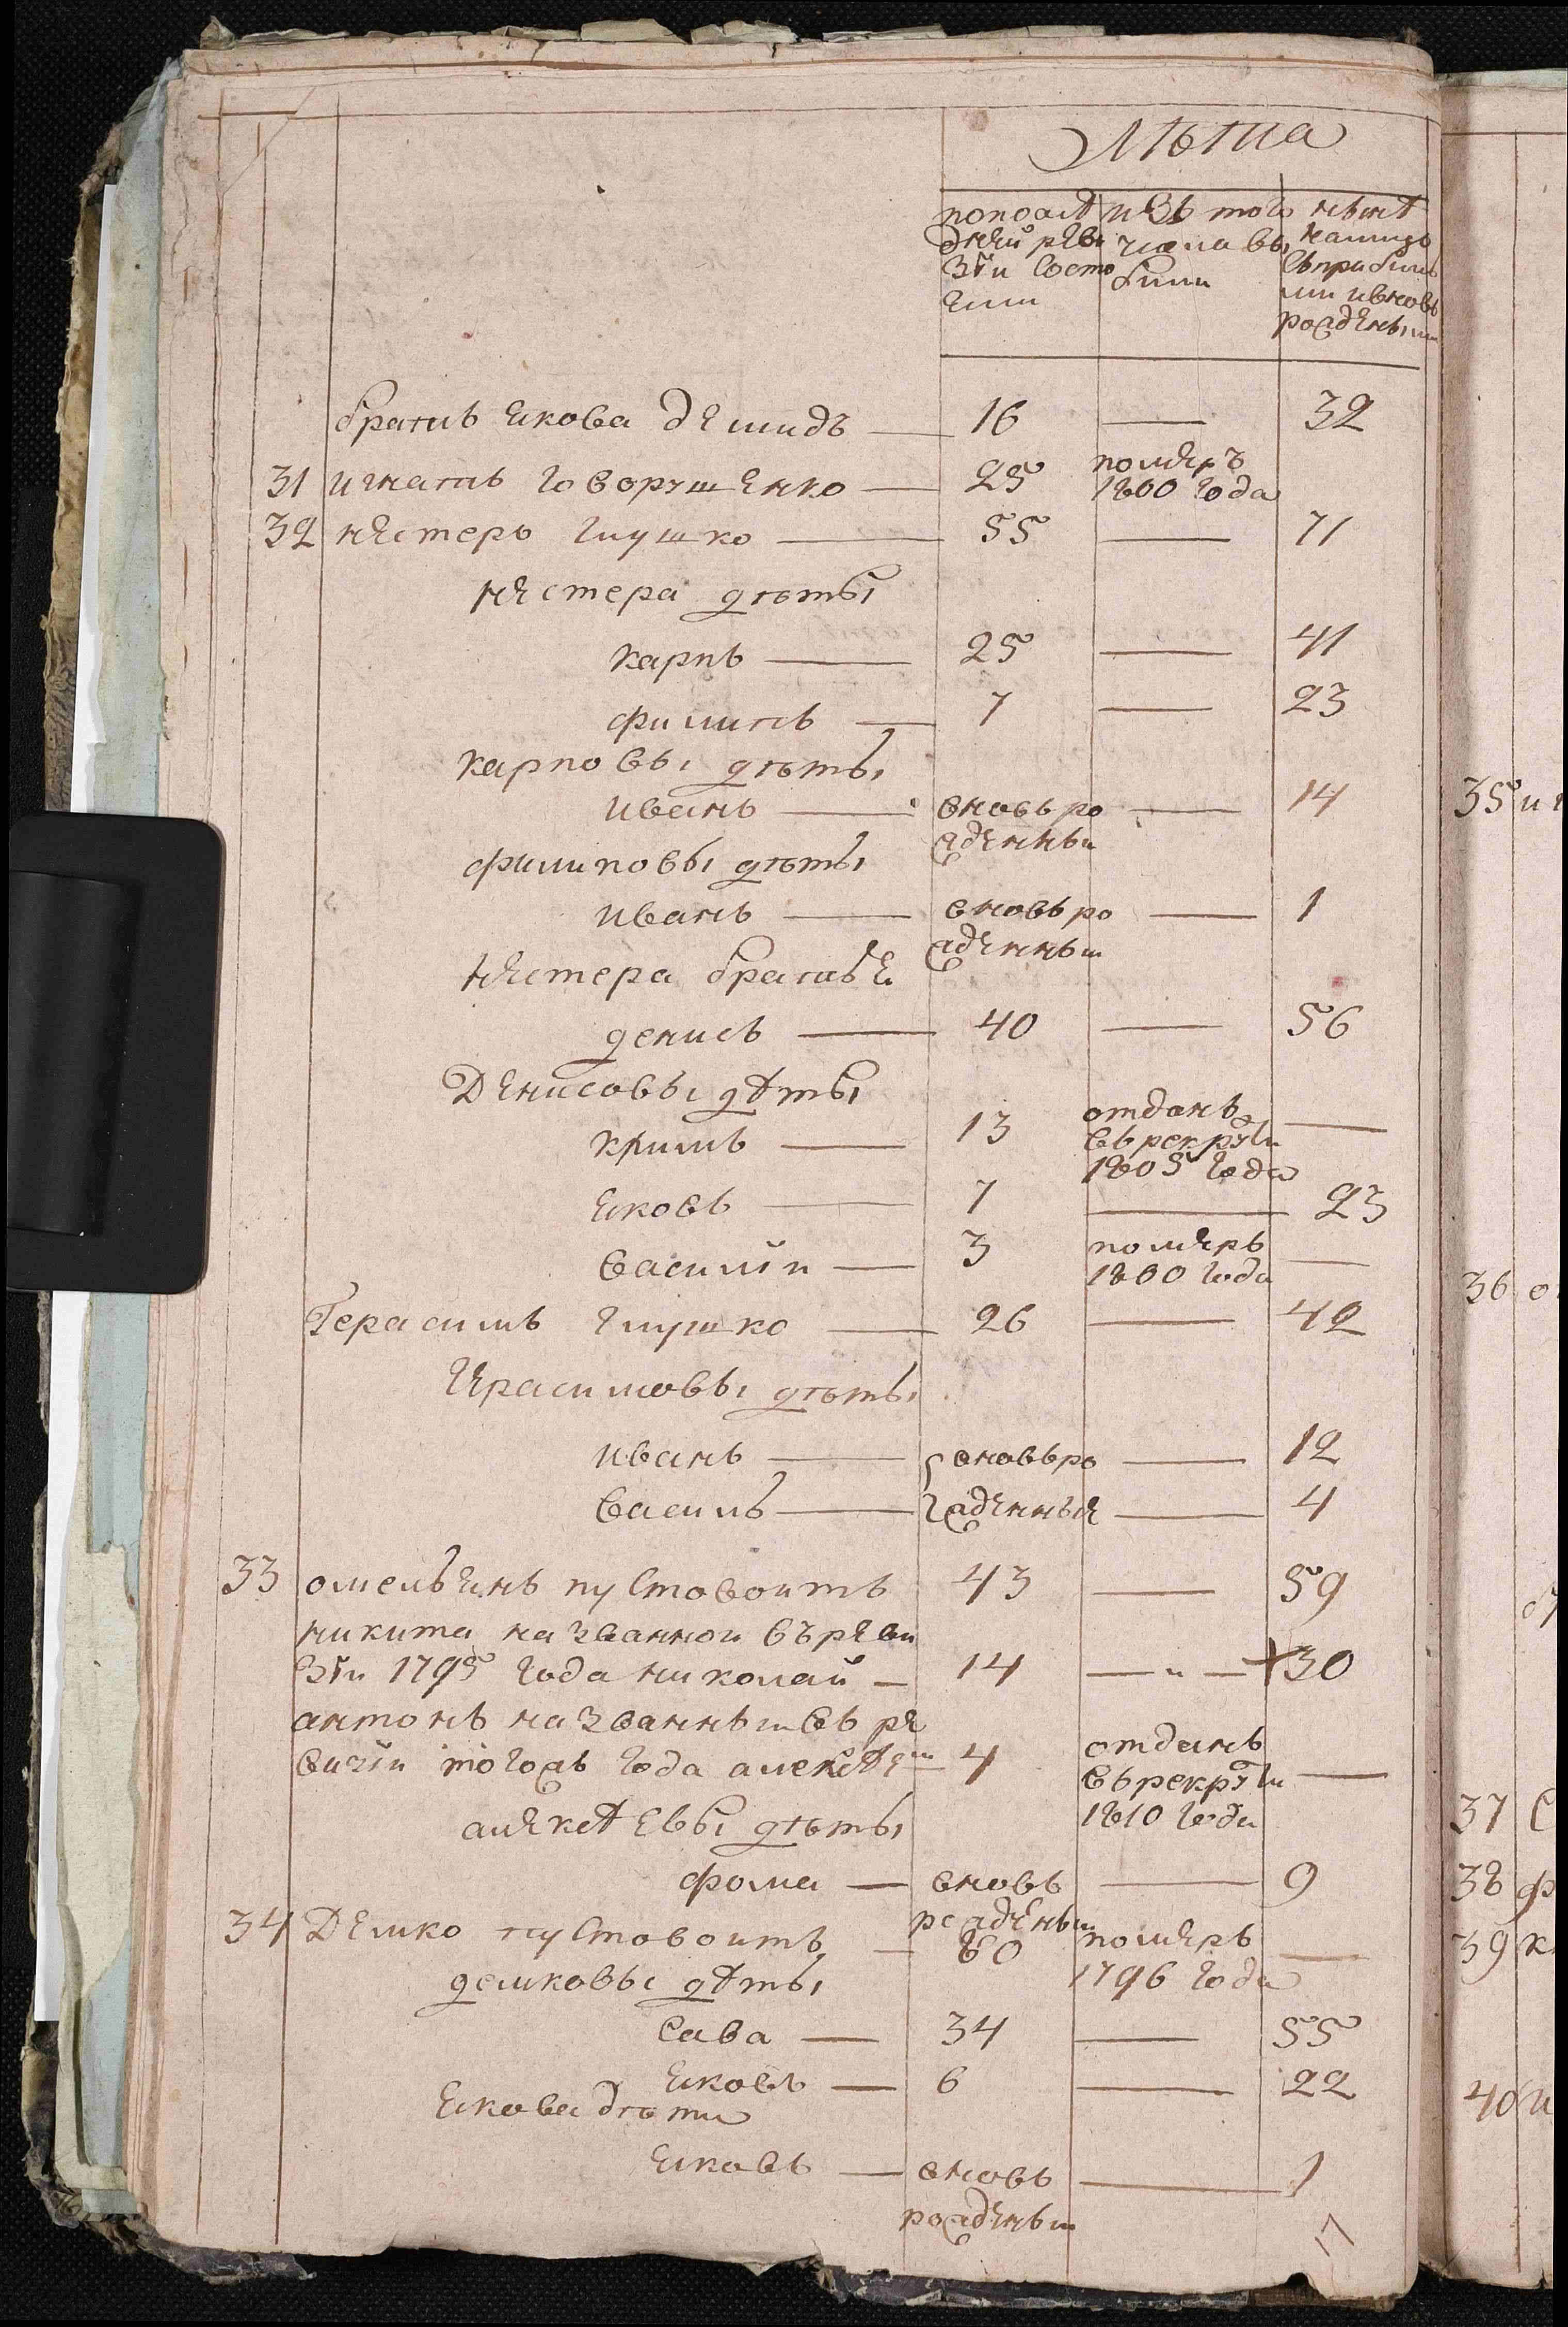 Лѣта
по послѣ | изъ того | нынѣ
дней реви | числа вы | налицо
зіи состо | были | съ прибилы
яли | | ми и вновь
| | рождеными
братъ якова демидъ — 16 — 32
31 игнатъ говорушенко — 25 померъ 1800 года
32 нестеръ глушко — 55 — 71
нестера дѣты
карпъ — 25 — 41
филипъ — 7 — 23
карповы дѣты
иванъ — вновь ро — 14
жденный
филиповы дѣты
иванъ — вновь ро — 1
жденный
нестера братья
денисъ — 40 — 56
Денисовы дѣты
климъ — 13 отданъ въ рекруты 1805 года —
яковъ — 7 — 23
василій — 3 померъ 1800 года —
Герасимъ глушко — 26 — 42
герасимовы дѣты
иванъ — вновь ро — 12
василь — жденные — 4
33 омельянъ пустовоитъ 43 — 59
никита названной въ реви
зіи 1795 года николай — 14 — „ — +30
антонъ названный въ ре
визіи тогожъ года алексѣй — 4 отданъ въ рекруты 1810 года —
алексѣевы дѣты
фома — вновь — 9
рожденый
34 Демко пустовоитъ — 80 померъ 1796 года —
демковы дѣты
сава — 34 — 55
яковъ — 6 — 22
якова дѣти
яковъ — вновь — 1
рожденый
17
35 и
36 о
37 С
38 ф
39 к
40 и